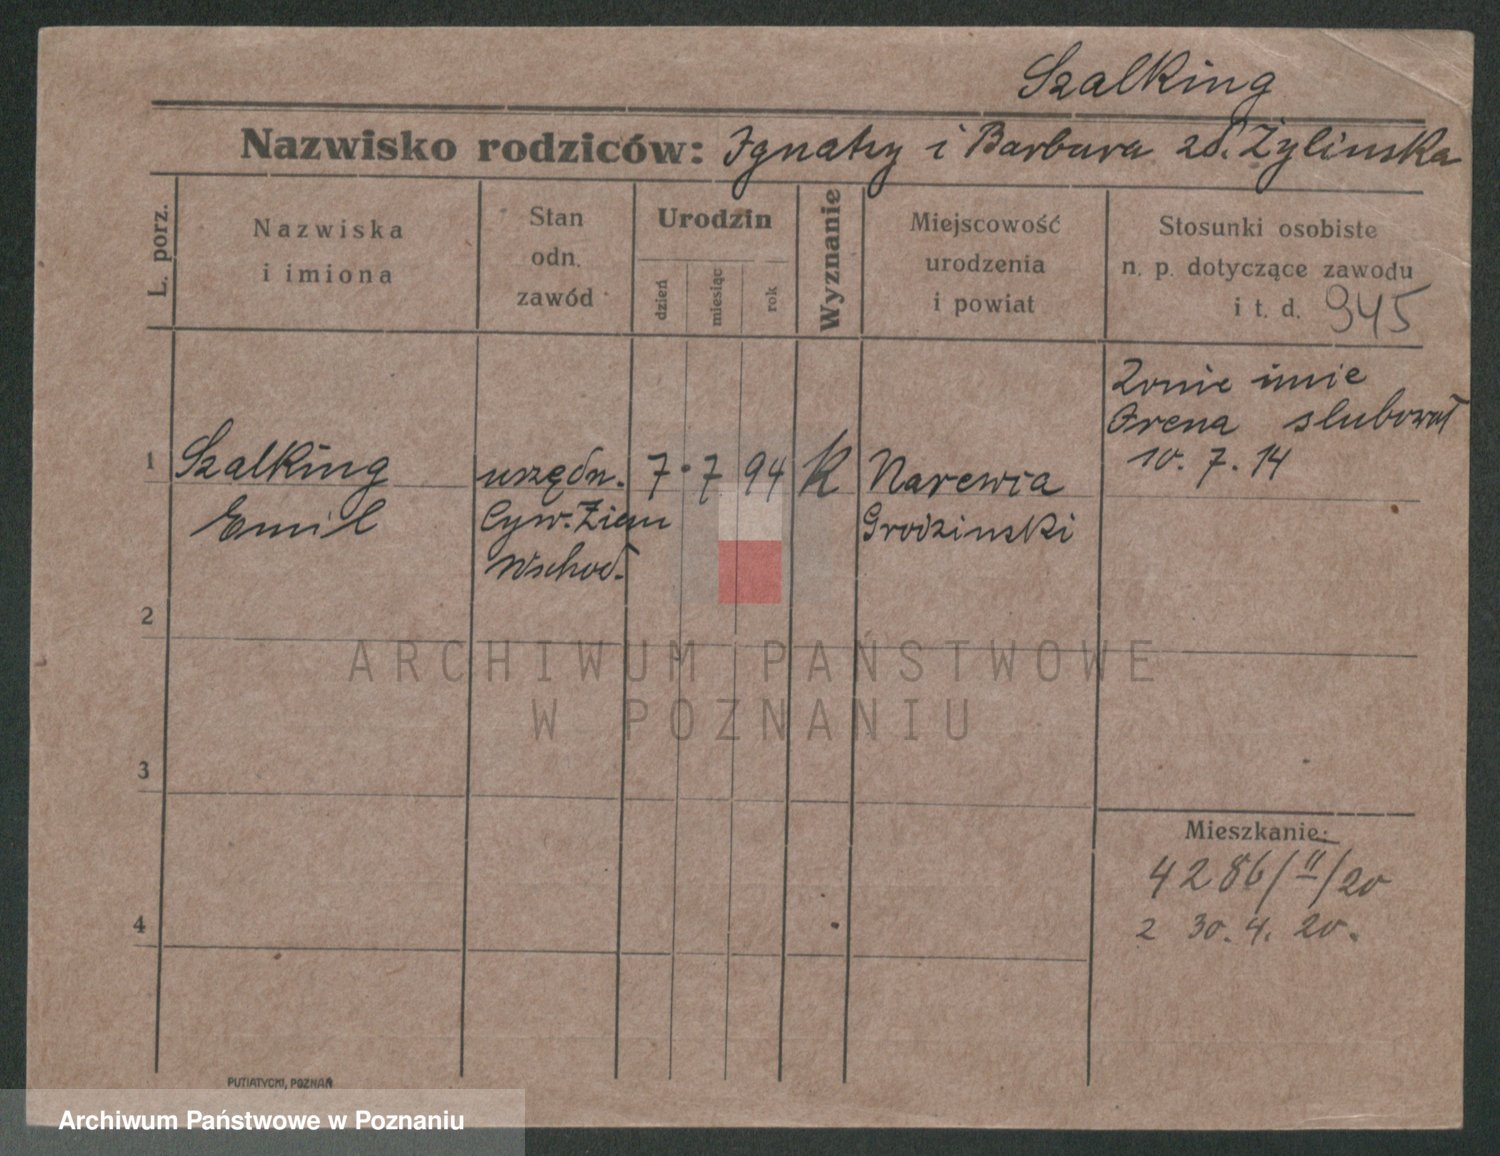 Szalking
Nazwisko rodziców: Ignatzy i Barbara zd. Żylinska
L. porz.
Nazwiska
i imiona
Stan
odn.
zawód
Urodzin
dzień
miesiąc
rok
Wyznanie
Miejscowość
urodzenia
i powiat
Stosunki osobiste
n. p. dotyczące zawodu
i t. d. 945
1 Szalking urzędn. 7 · 7 94 K Narewia
Emil Cyw. Ziem Grodzinski
Wschod.
Żonie imie
Irena slubował
10. 7. 14
2
3
4
Mieszkanie:
4286/II/20
z 30. 4. 20.
PUTIATYCKI, POZNAŃ
ARCHIWUM PAŃSTWOWE
W POZNANIU
Archiwum Państwowe w Poznaniu